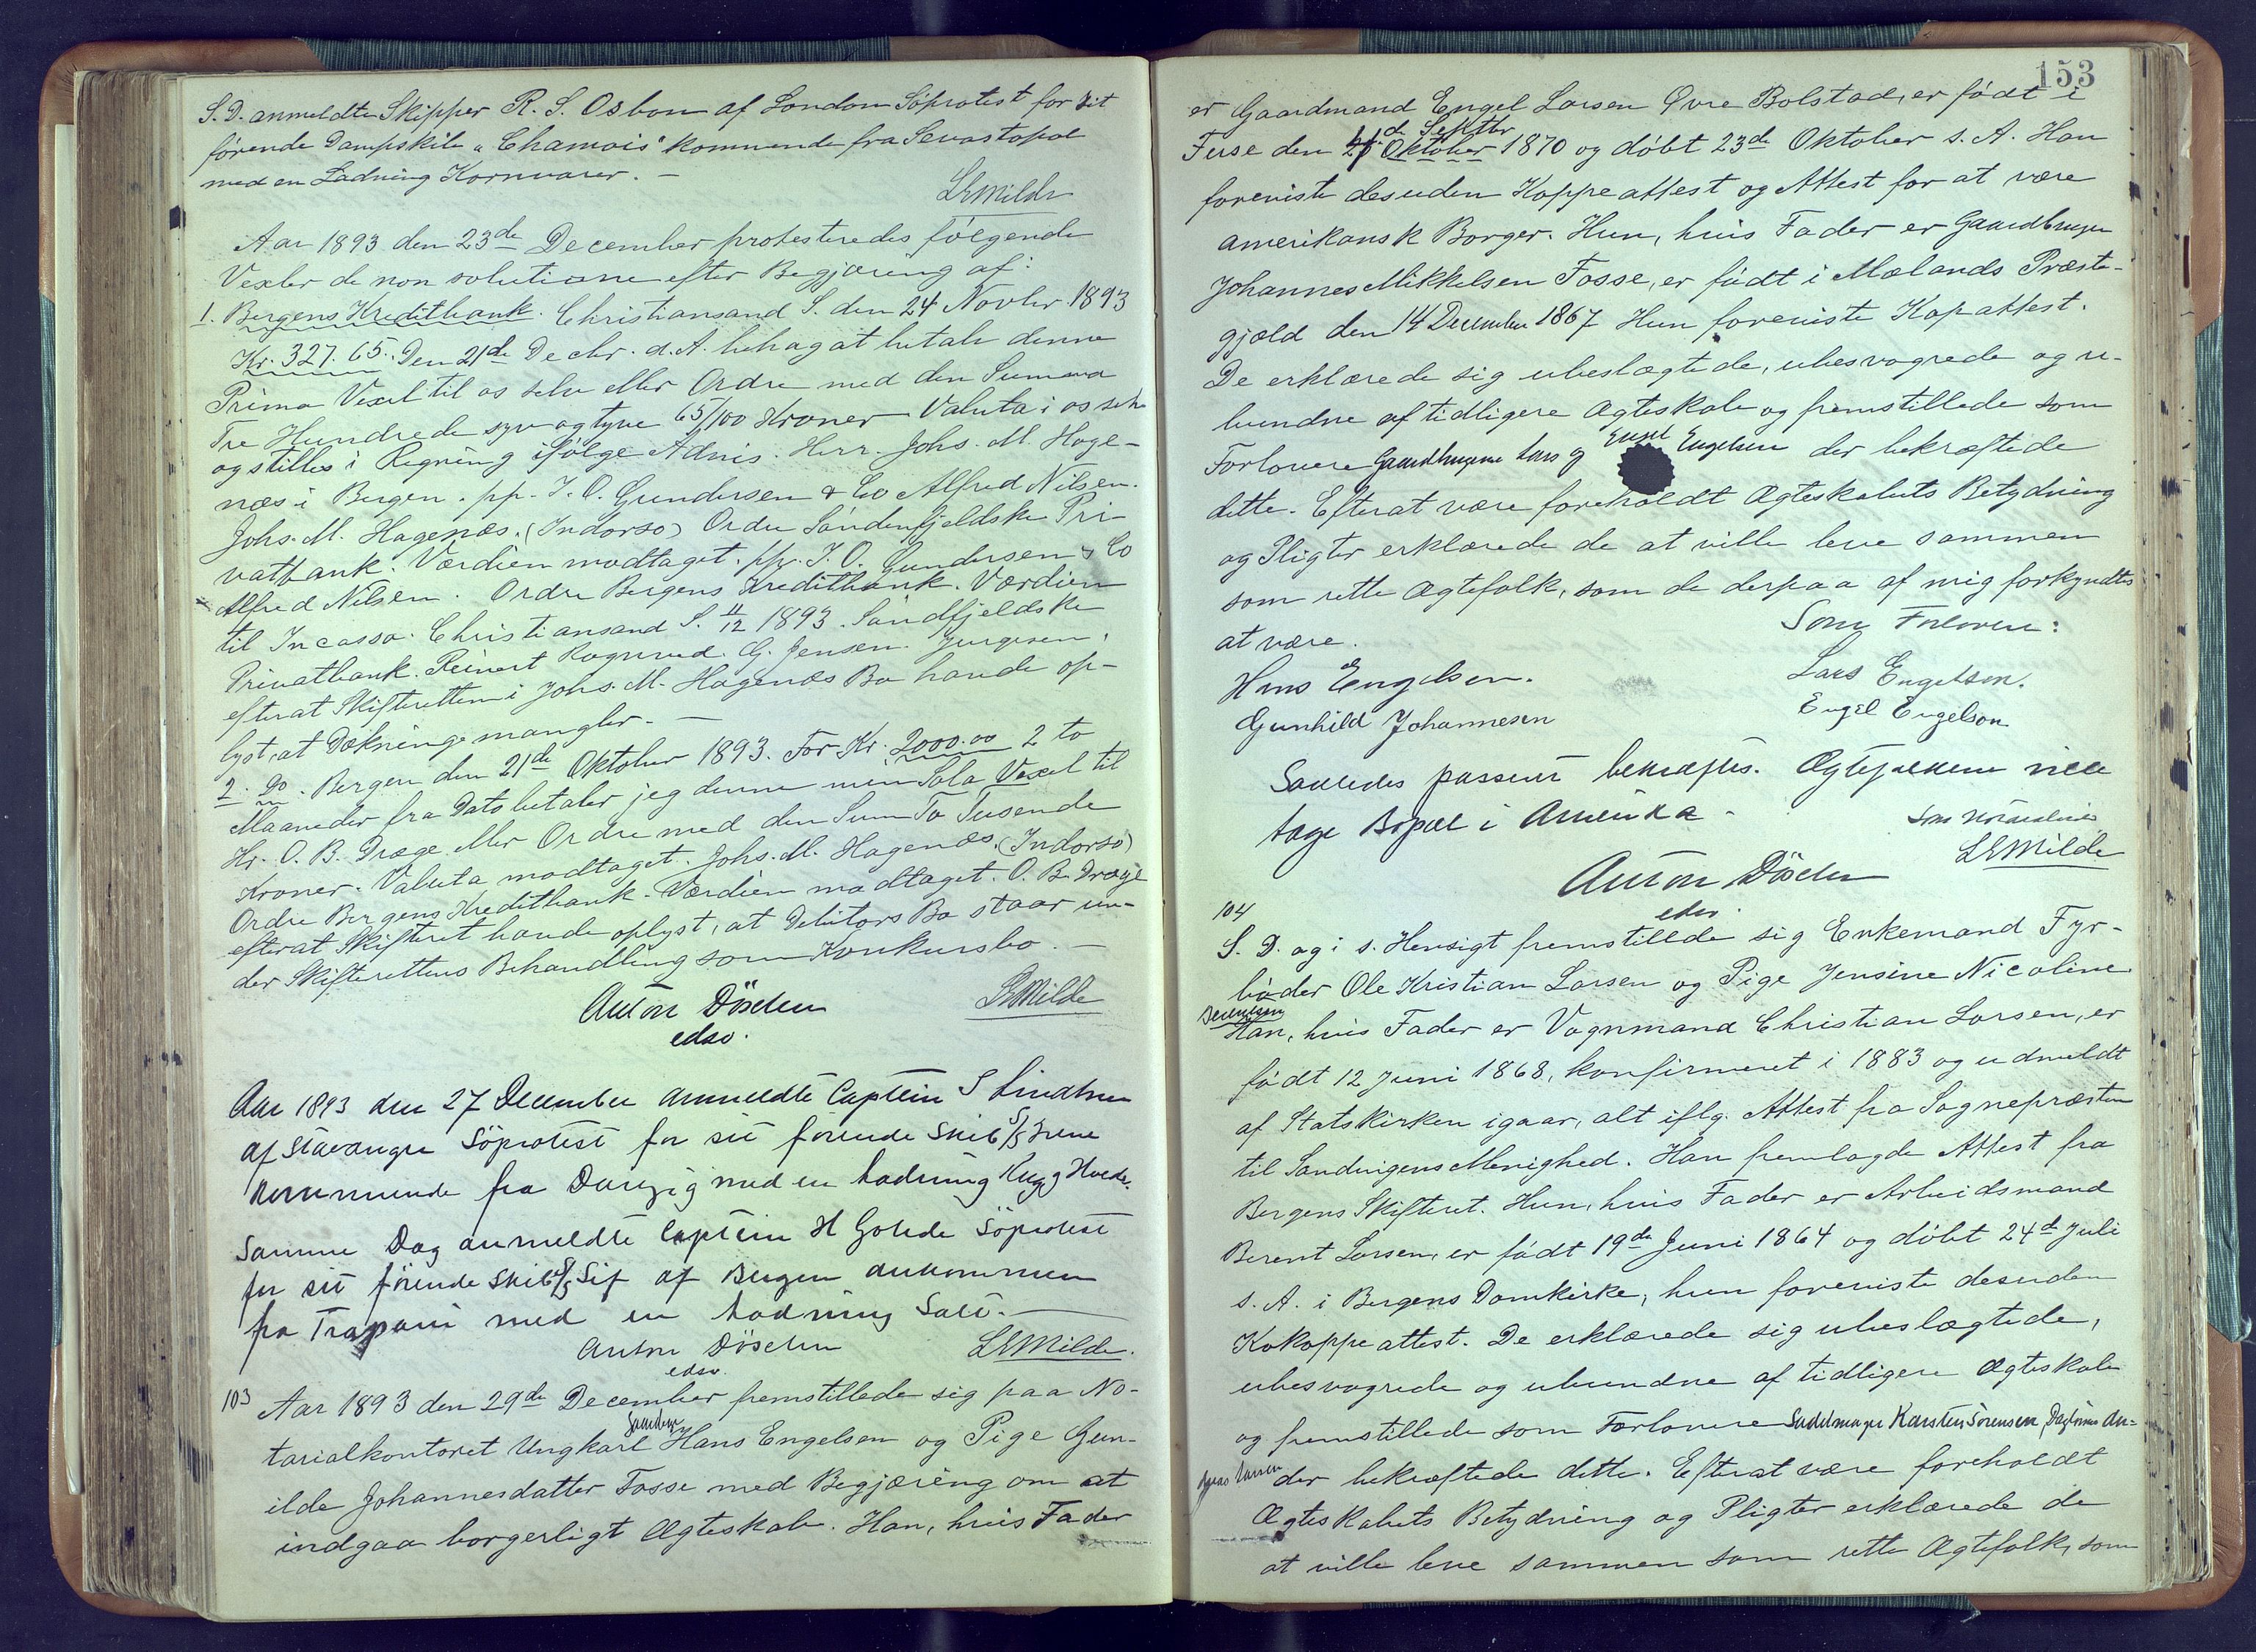 S. D. anmeldte Skipper R. S. Osbon af London Söprotest for sit
förende Dampskib "Chamois" kommende fra Sevastopol
med en Ladning Kornvarer. —
LEMilde
Aar 1893 den 23de December protesteredes følgende
Vexler de non solutione efter Begjæring af:
1. Bergens Kreditbank. Christiansand S. den 24 Novbr. 1893
Kr. 327.65. Den 21de Decbr. d. A. behag at betale denne
Prima Vexel til os selv eller Ordre med den Summa
Tre Hundrede syv og tyve 65/100 Kroner Valuta i os selv
og stilles i Regning ifølge Advis. Herr. Johs. M. Hage-
næs i Bergen. pp. J. O. Gundersen & Co Alfred Nilsen.
Johs. M. Hagenæs. (Indorso) Ordre Söndenfjeldske Pri-
vatbank. Værdien modtaget. pp. J. O. Gundersen & Co
Alfred Nilsen. Ordre Bergens Kreditbank. Værdien
til Incasso. Christiansand S. 11/12 1893. Söndfjeldske
Privatbank. Reinert Rognrud. G. Jensen. Jurgesen,
efterat Skifteretten i Johs. M. Hagenæs Bo havde op-
lyst, at Dækning mangler. —
2. Do. Bergen den 21de Oktober 1893. For Kr. 2000.00 2 to
Maaneder fra Dato betaler jeg denne min Sola Vexel til
Hr. O. B. Dræge eller Ordre med den Sum To Tusende
Kroner. Valuta modtaget. Johs. M. Hagenæs. (Indorso)
Ordre Bergens Kreditbank. Værdien modtaget. O. B. Dræge
efterat Skifteret havde oplyst, at Debitors Bo staar un-
der Skifterettens Behandling som Konkursbo. —
Anton Döscher LEMilde
edsv.
Aar 1893 den 27 December anmeldte Captein S Lindtner
af Stavanger Söprotest for sit förende Skib S/S Irene
kommende fra Danzig med en Ladning Rug & Hvede.
Samme Dag anmeldte Captein H Gohde Söprotest
for sit förende Skib S/S Sif af Bergen ankommen
fra Trapani med en Ladning Salt. —
Anton Döscher LEMilde.
edsv.
103 Aar 1893 den 29de December fremstillede sig paa No-
tarialkontoret Ungkarl Hans Engelsen og Pige Gun-
ilde Johannesdatter Fosse med Begjæring om at
indgaa borgerligt Ægteskab. Han, hvis Fader
153
er Gaardmand Engel Larsen Øvre Bolstad, er født i
de Septbr
Fuse den Oktober 1870 og døbt 23de Oktober s. A. Han
foreviste desuden Koppeattest og Attest for at være
amerikansk Borger. Hun, hvis Fader er Gaardbruger
Johannes Mikkelsen Fosse, er født i Mælands Præste-
gjæld den 14 December 1867 Hun foreviste Kopattest.
De erklærede sig ubeslægtede, ubesvogrede og u-
bundne af tidligere Ægteskab og fremstillede som
Forlovere Gaardbrugerne Lars og Engel Engelsen der bekræftede
dette. Efterat være foreholdt Ægteskabets Betydning
og Pligter erklærede de at ville leve sammen
som rette Ægtefolk, som de derpaa af mig forkyndtes
at være. Som Forlovere:
Hans Engelsen. Lars Engelsen.
Gunhild Johannesen Engel Engelson
Saaledes passeret bekræftes. Ægtefolkene ville
tage Bopæl i Amerika.
LEMilde
Anton Döscher
edsv.
104
S. D. og i s. Hensigt fremstillede sig Enkemand Fyr-
bøder Ole Kristian Larsen og Pige Jensine Nicoline
Berentsen
Han, hvis Fader er Vognmand Christian Larsen, er
født 12 Juni 1868, konfirmeret i 1883 og udmeldt
af Statskirken igaar, alt iflg. Attest fra Sognepræsten
til Sandvigens Menighed. Han fremlagde Attest fra
Bergens Skifteret. Hun, hvis Fader er Arbeidsmand
Berent Larsen, er født 19de Juni 1864 og døbt 24de Juli
s. A. i Bergens Domkirke, hun foreviste desuden
Kokoppeattest. De erklærede sig ubeslægtede,
ubesvogrede og ubundne af tidligere Ægteskab
og fremstillede som Forlovere Sadelmager Karsten Sörensen, An-
dreas Larsen der bekræftede dette. Efterat være foreholdt
Ægteskabets Betydning og Pligter erklærede de
at ville leve sammen som rette Ægtefolk, som